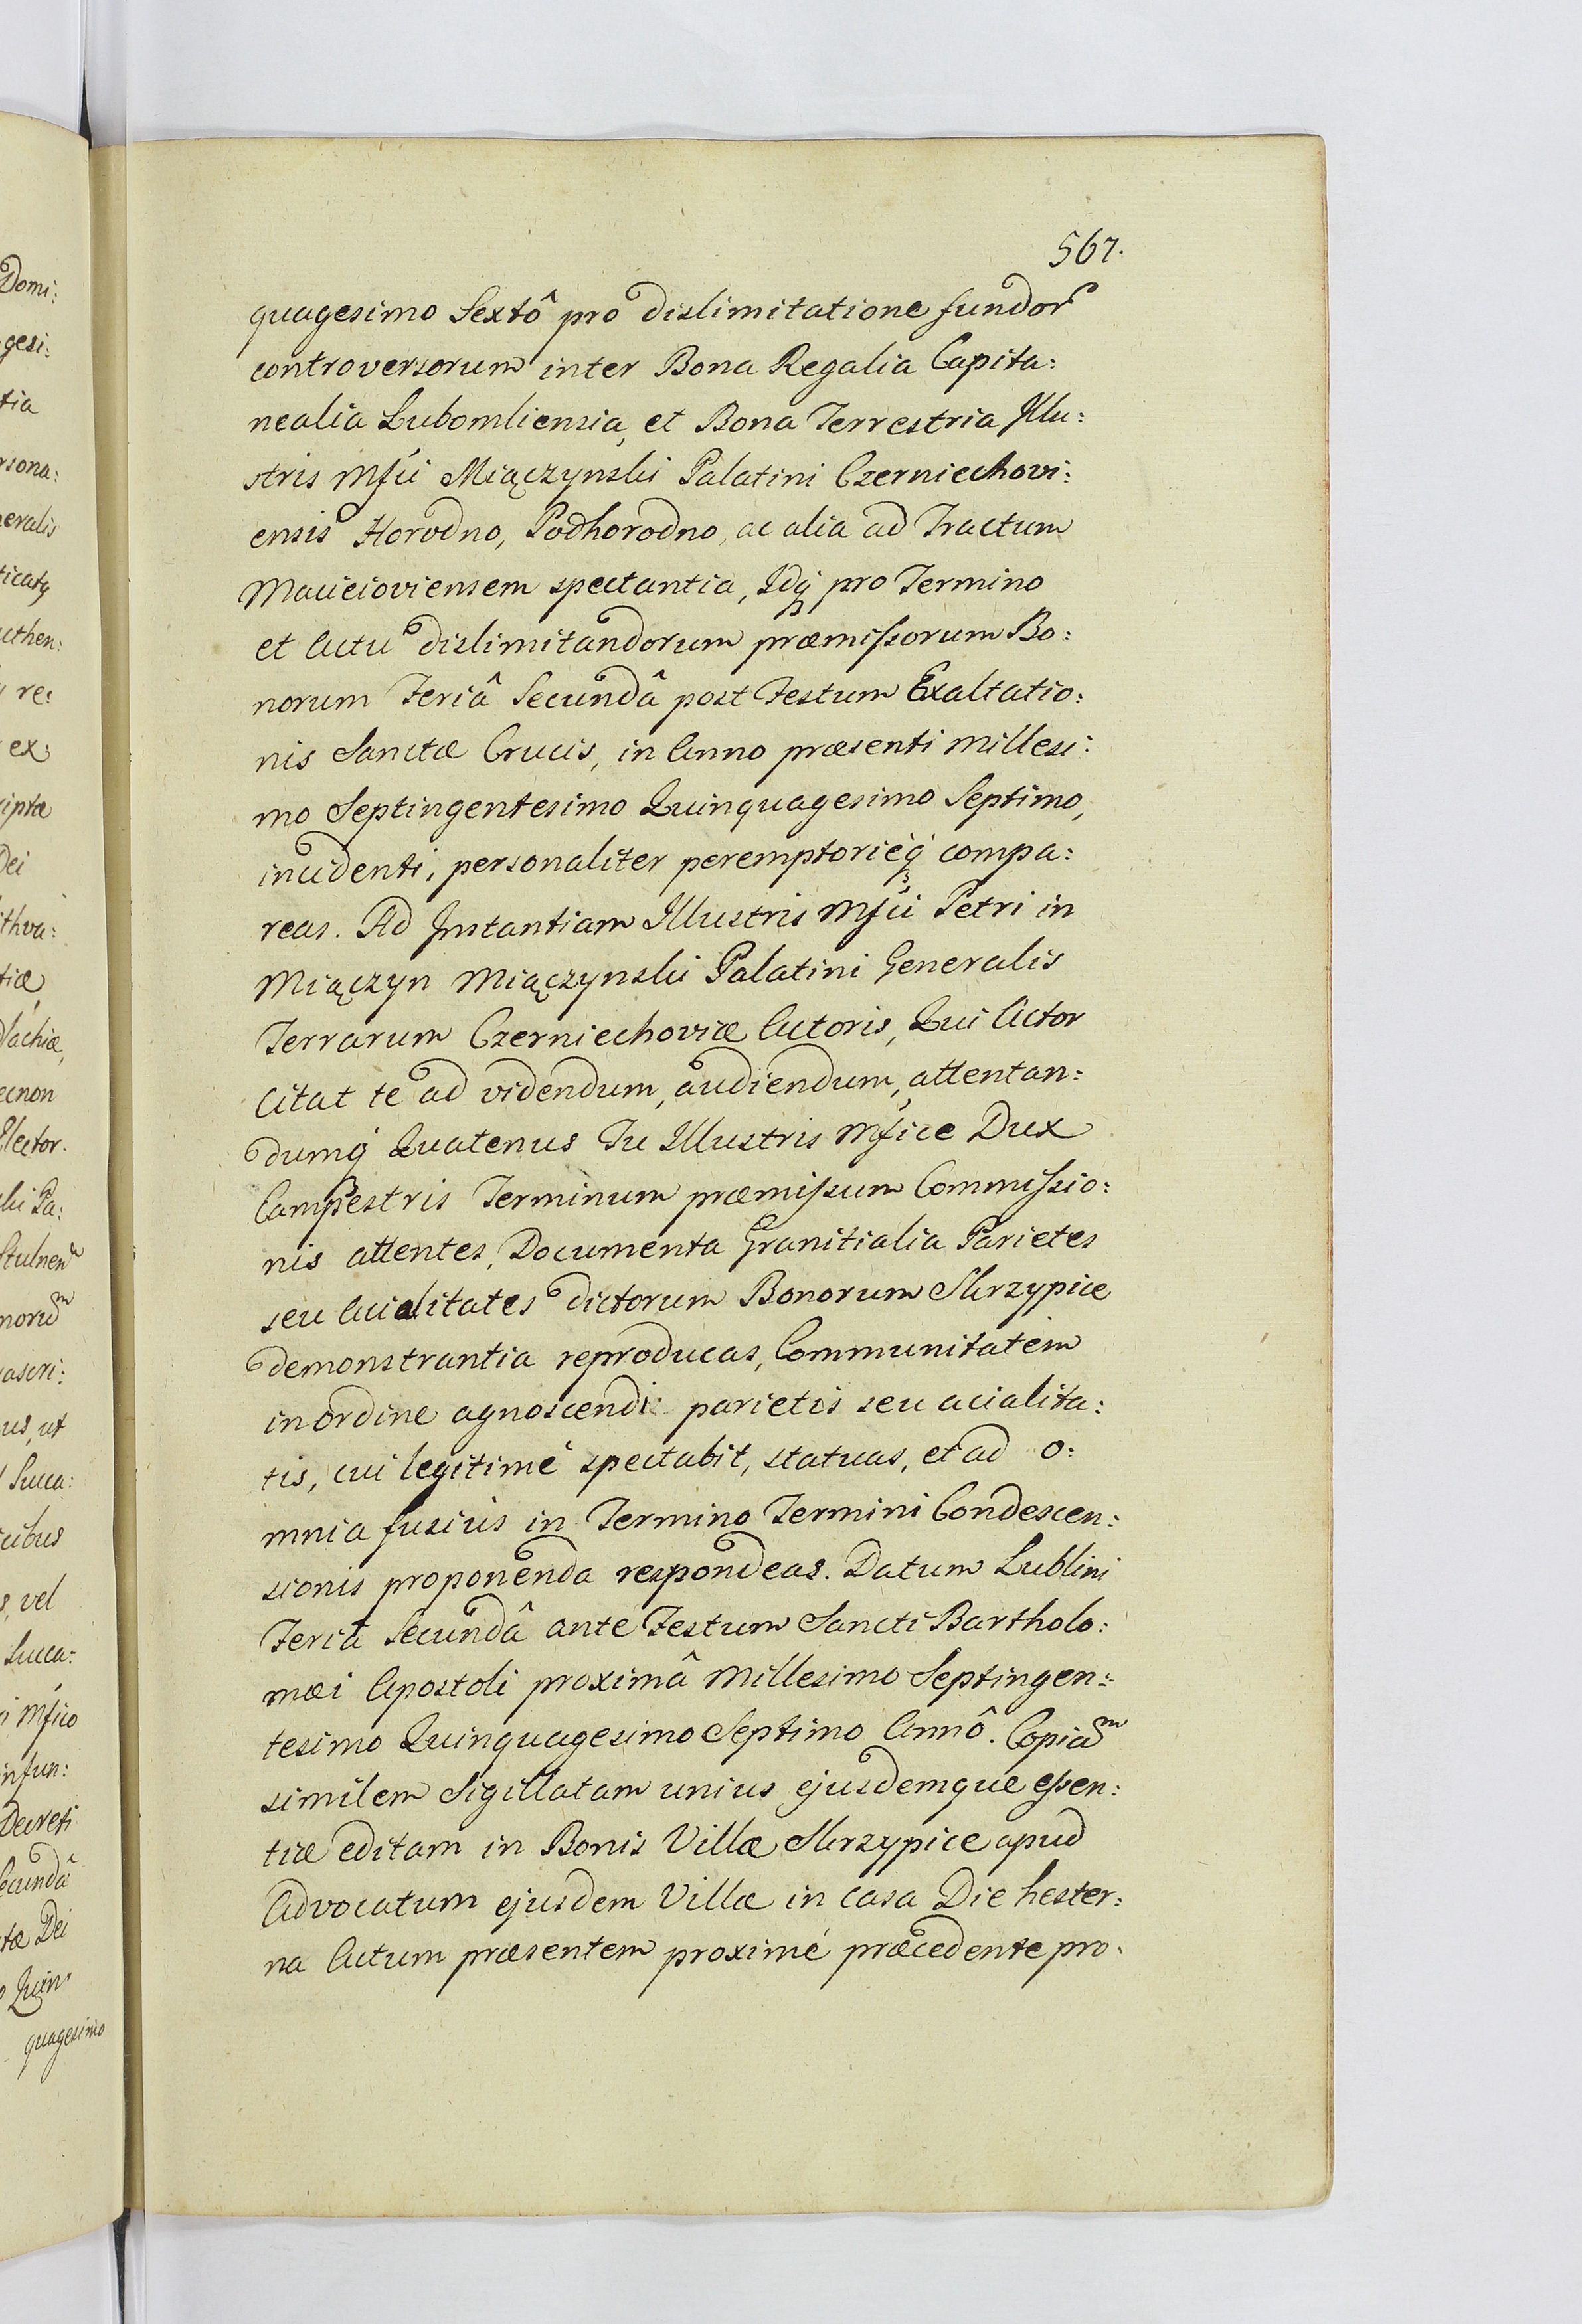 567.
quagesimo Sextô pro dislimitatione fundor
controversorum inter Bona Regalia Capita:
nealia Lubomliensia, et Bona Terrestria Illu:
stris Mfci Miączynski Palatini Czerniechovi:
ensis Horodno, Podhorodno, ac alia ad Tractum
Macieioviensem spectantia, Idq pro Termino
et Actu dislimitandorum præmissorum Bo:
norum Feriâ Secundâ post Festum Exaltatio:
nis Sanctæ Crucis, in Anno præsenti Millesi:
mo Septingentesimo Quinquagesimo Septimo,
incidenti, personaliter peremptorieq compa:
reas. Ad Instantiam Illustris Mfci Petri in
Miączyn Miączynski Palatini Generalis
Terrarum Czerniechoviæ Actoris, Qui Actor
Citat te ad videndum, audiendum, attentan:
dumq Quatenus Tu Illustris Mfice Dux
Campestris Terminum præmissum Commissio:
nis attentes, Documenta Granitialia Parietes
seu Acialitates dictorum Bonorum Skrzypice
demonstrantia reproducas, Communitatem
in ordine agnoscendi parietis seu acialita:
tis, cui legitimè spectabit, statuas, et ad o:
mnia fusius in Termino Termini Condescen:
sionis proponenda respondeas. Datum Lublini
Feriâ Secundâ ante Festum Sancti Bartholo:
mæi Apostoli proximâ Millesimo Septingen:
tesimo Quinquagesimo Septimo Annô. Copiam
similem Sigillatam unius ejusdemque essen:
tiæ editam in Bonis Villæ Skrzypice apud
Advocatum ejusdem Villæ in Casa Die hester:
na Actum præsentem proximè præcedente pro: